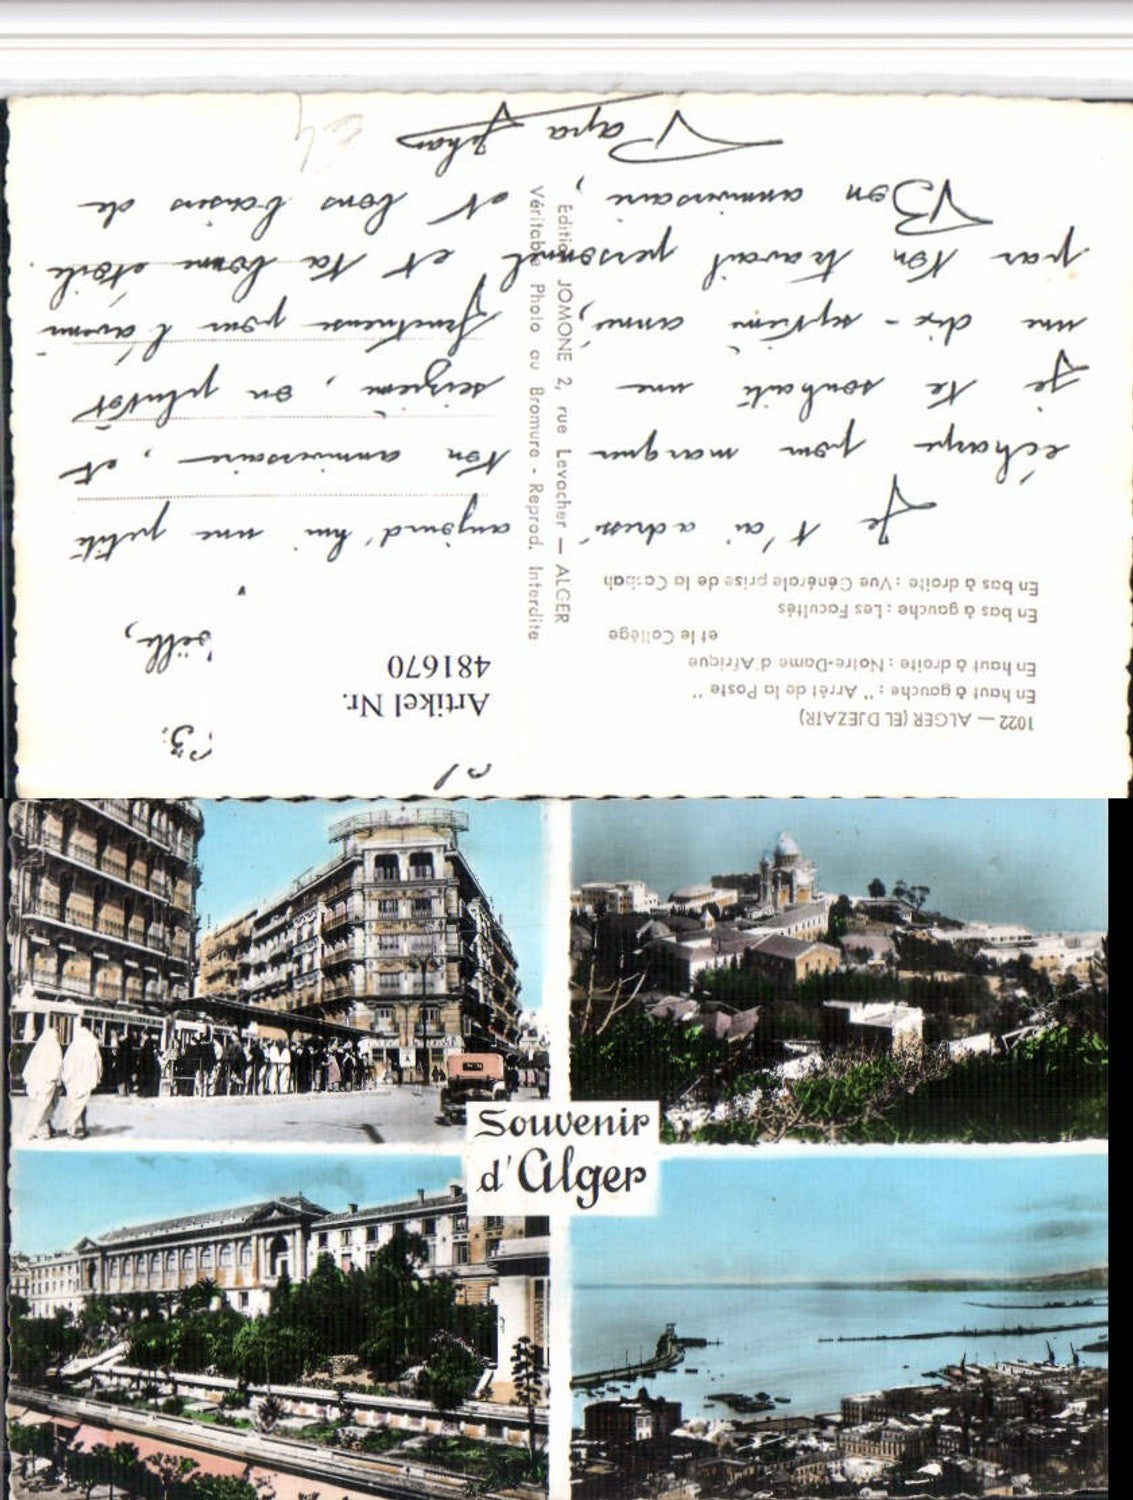 1022 — ALGER (EL DJEZAIR)
En haut à gauche : " Arrêt de la Poste "
En haut à droite : Notre-Dame d'Afrique
et le Collège
En bas à gauche : Les Facultés
En bas à droite : Vue Générale prise de la Casbah
Edition JOMONE 2, rue Levacher — ALGER
Véritable Photo au Bromure - Reprod. Interdite
Artikel Nr.
481670
Je t'ai adressé aujourd'hui une petite
écharpe pour marquer ton anniversaire, et
je te souhaite une seizième, ou plutôt
une dix-septième année, fructueuse pour l'avenir
par ton travail personnel et ta bonne étoile.
Bon anniversaire, et bons baisers de
Papa
Souvenir
d'Alger